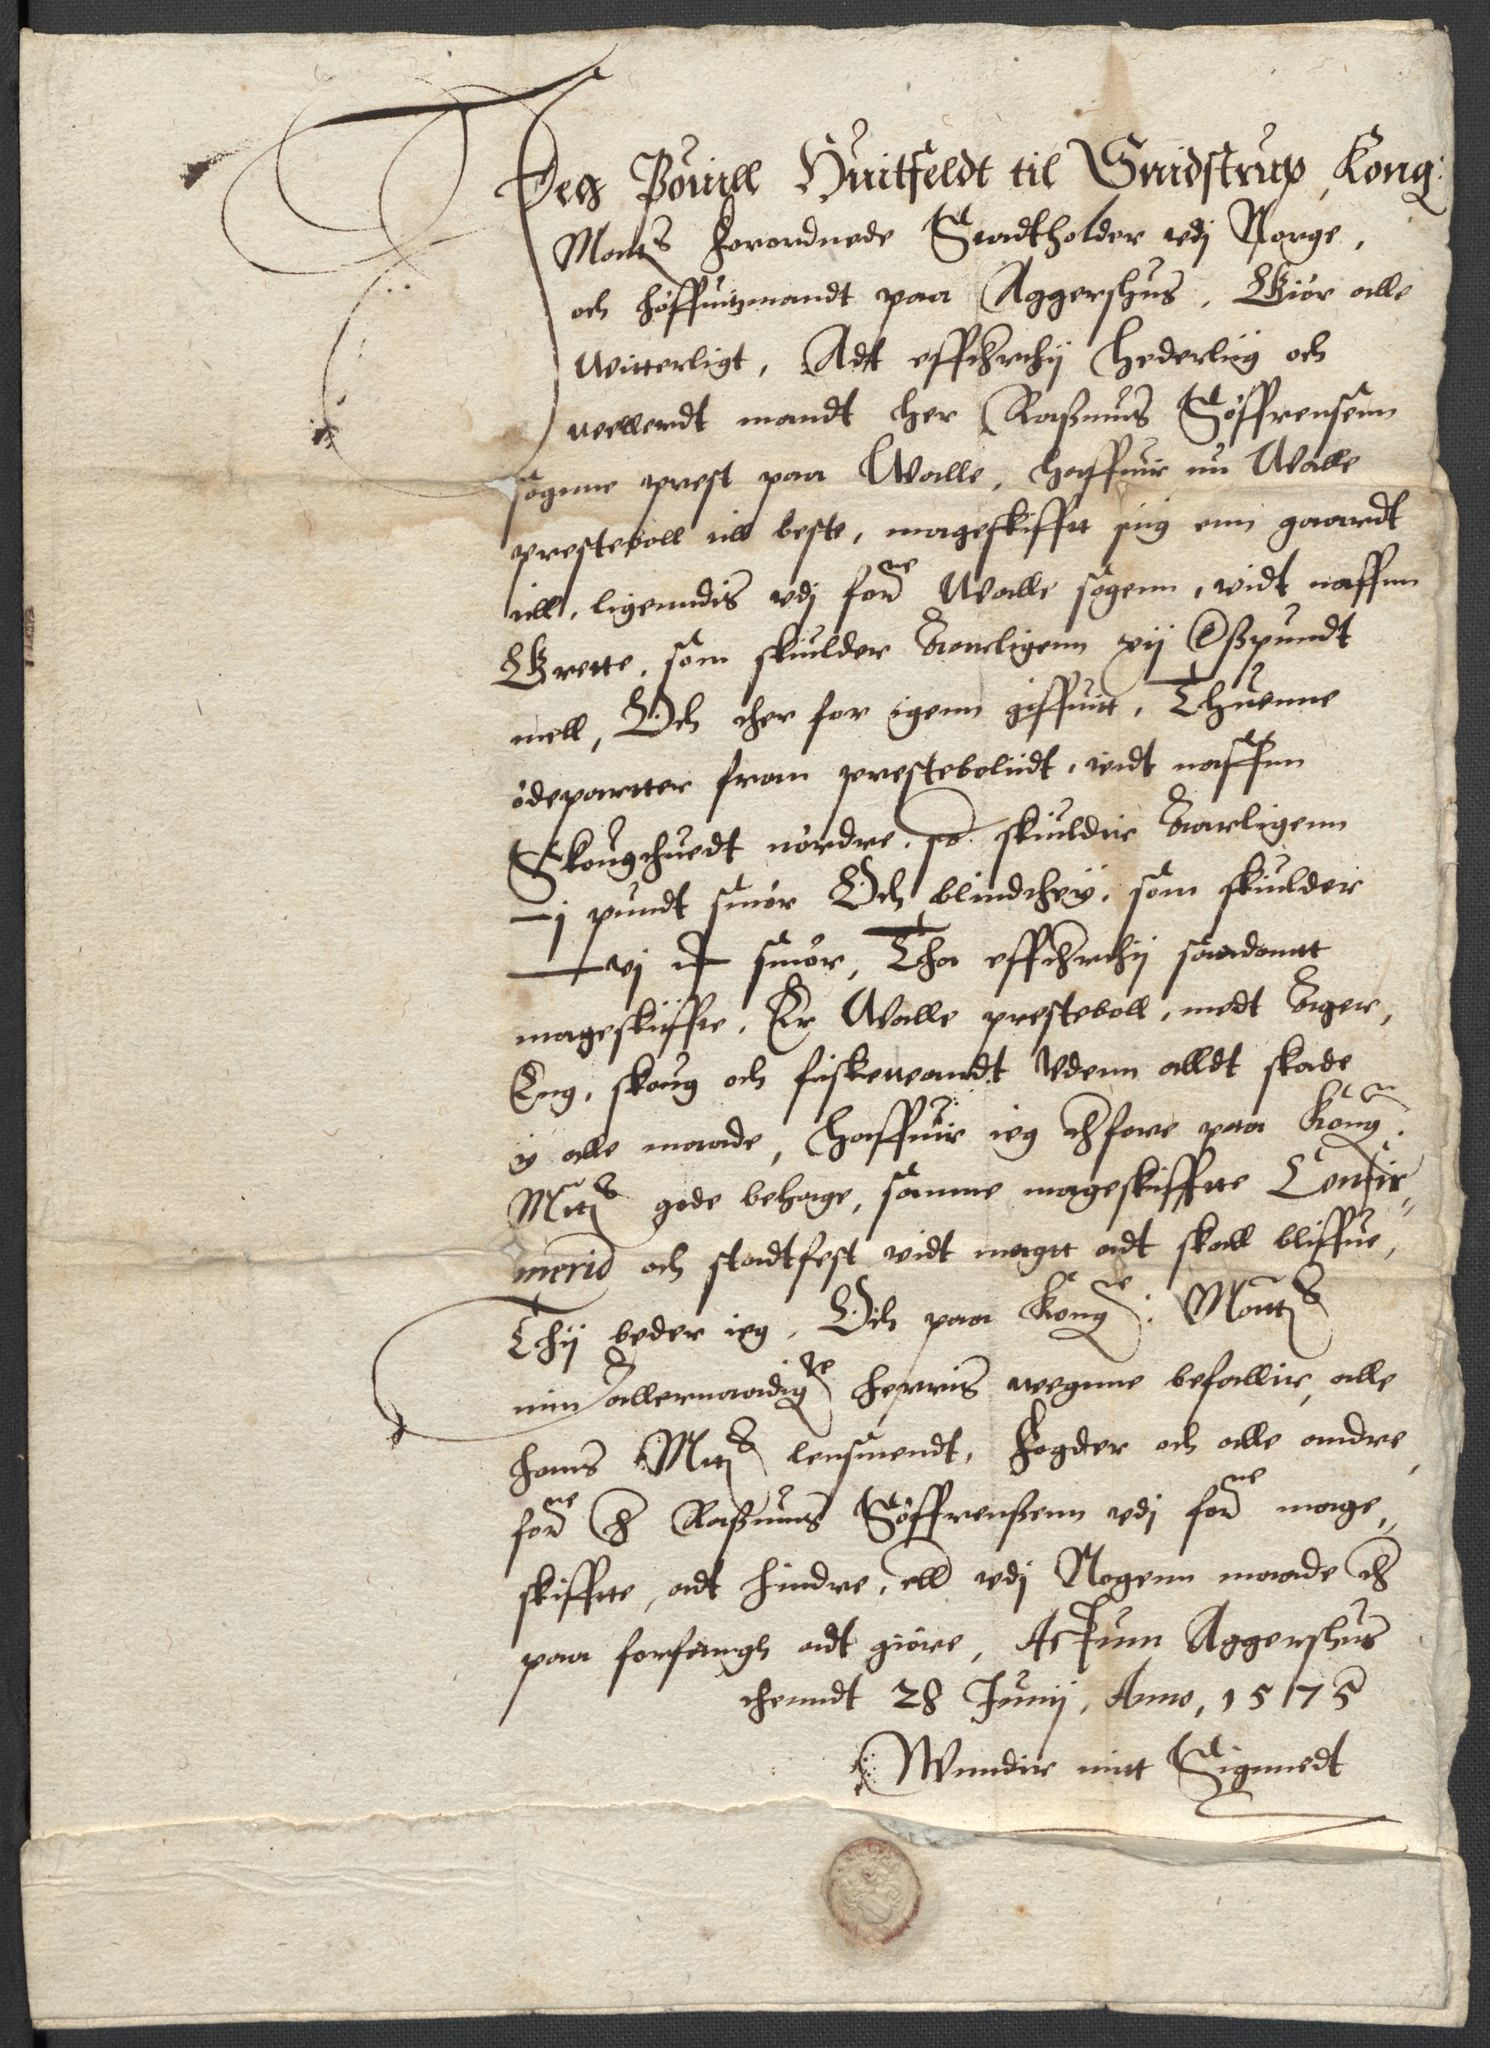 Jeg Pouill Huitfeldt til Suidstrup, Kong:
Mattz forordnede Stadtholder vdj Norge,
och høffuitzmandt paa Aggershus, Giør alle
witterligt, Adt effthrthij Hederliig och
wellerdt mandt her Raßmus Søffrensenn
sognne prest paa Walle, haffuir nu Walle
presteboll till beste, mageskifft siig enn gaardt
till, ligenndis vdj forne Walle sogenn, widt naffnn
Grette, som skiulder aarligenn xij Ȣßpundt
mell, Och ther for igenn giffuitt, Thuenne
ødepartter fraa prestebolidt, widt naffnn
Skougthuedt nørdre, so skiuldir aarligenn
–j pundt smør Och blindthey, som skiulder
– vj ℔ smør, Tha effthrthij saadantt
mageskiffte, Er Walle prestebol, medt ager,
Eng, skoug och fiskewandt Vdenn alldt skade
y alle maade, Haffuir ieg therfore paa Kong:
Mttz gode behage, samme mageskiffte Confir„
merid och stadtfest widt magtt adt skall bliffue,
Thij beder ieg, Och paa Konge: Mattz
min allernaadigste herris wegnne befallir, alle
hans Mttz lensmendt, Fogder och alle andre
forne her Raßmus Søffrenßenn vdj forne mage„
skiffte, adt hindre, eller vdj Nogenn maade ther
paa forfangh adt giøre, Actum Aggershus
thenndt 28 Junij, Anno, 1575
Wnndir mitt Signnedt